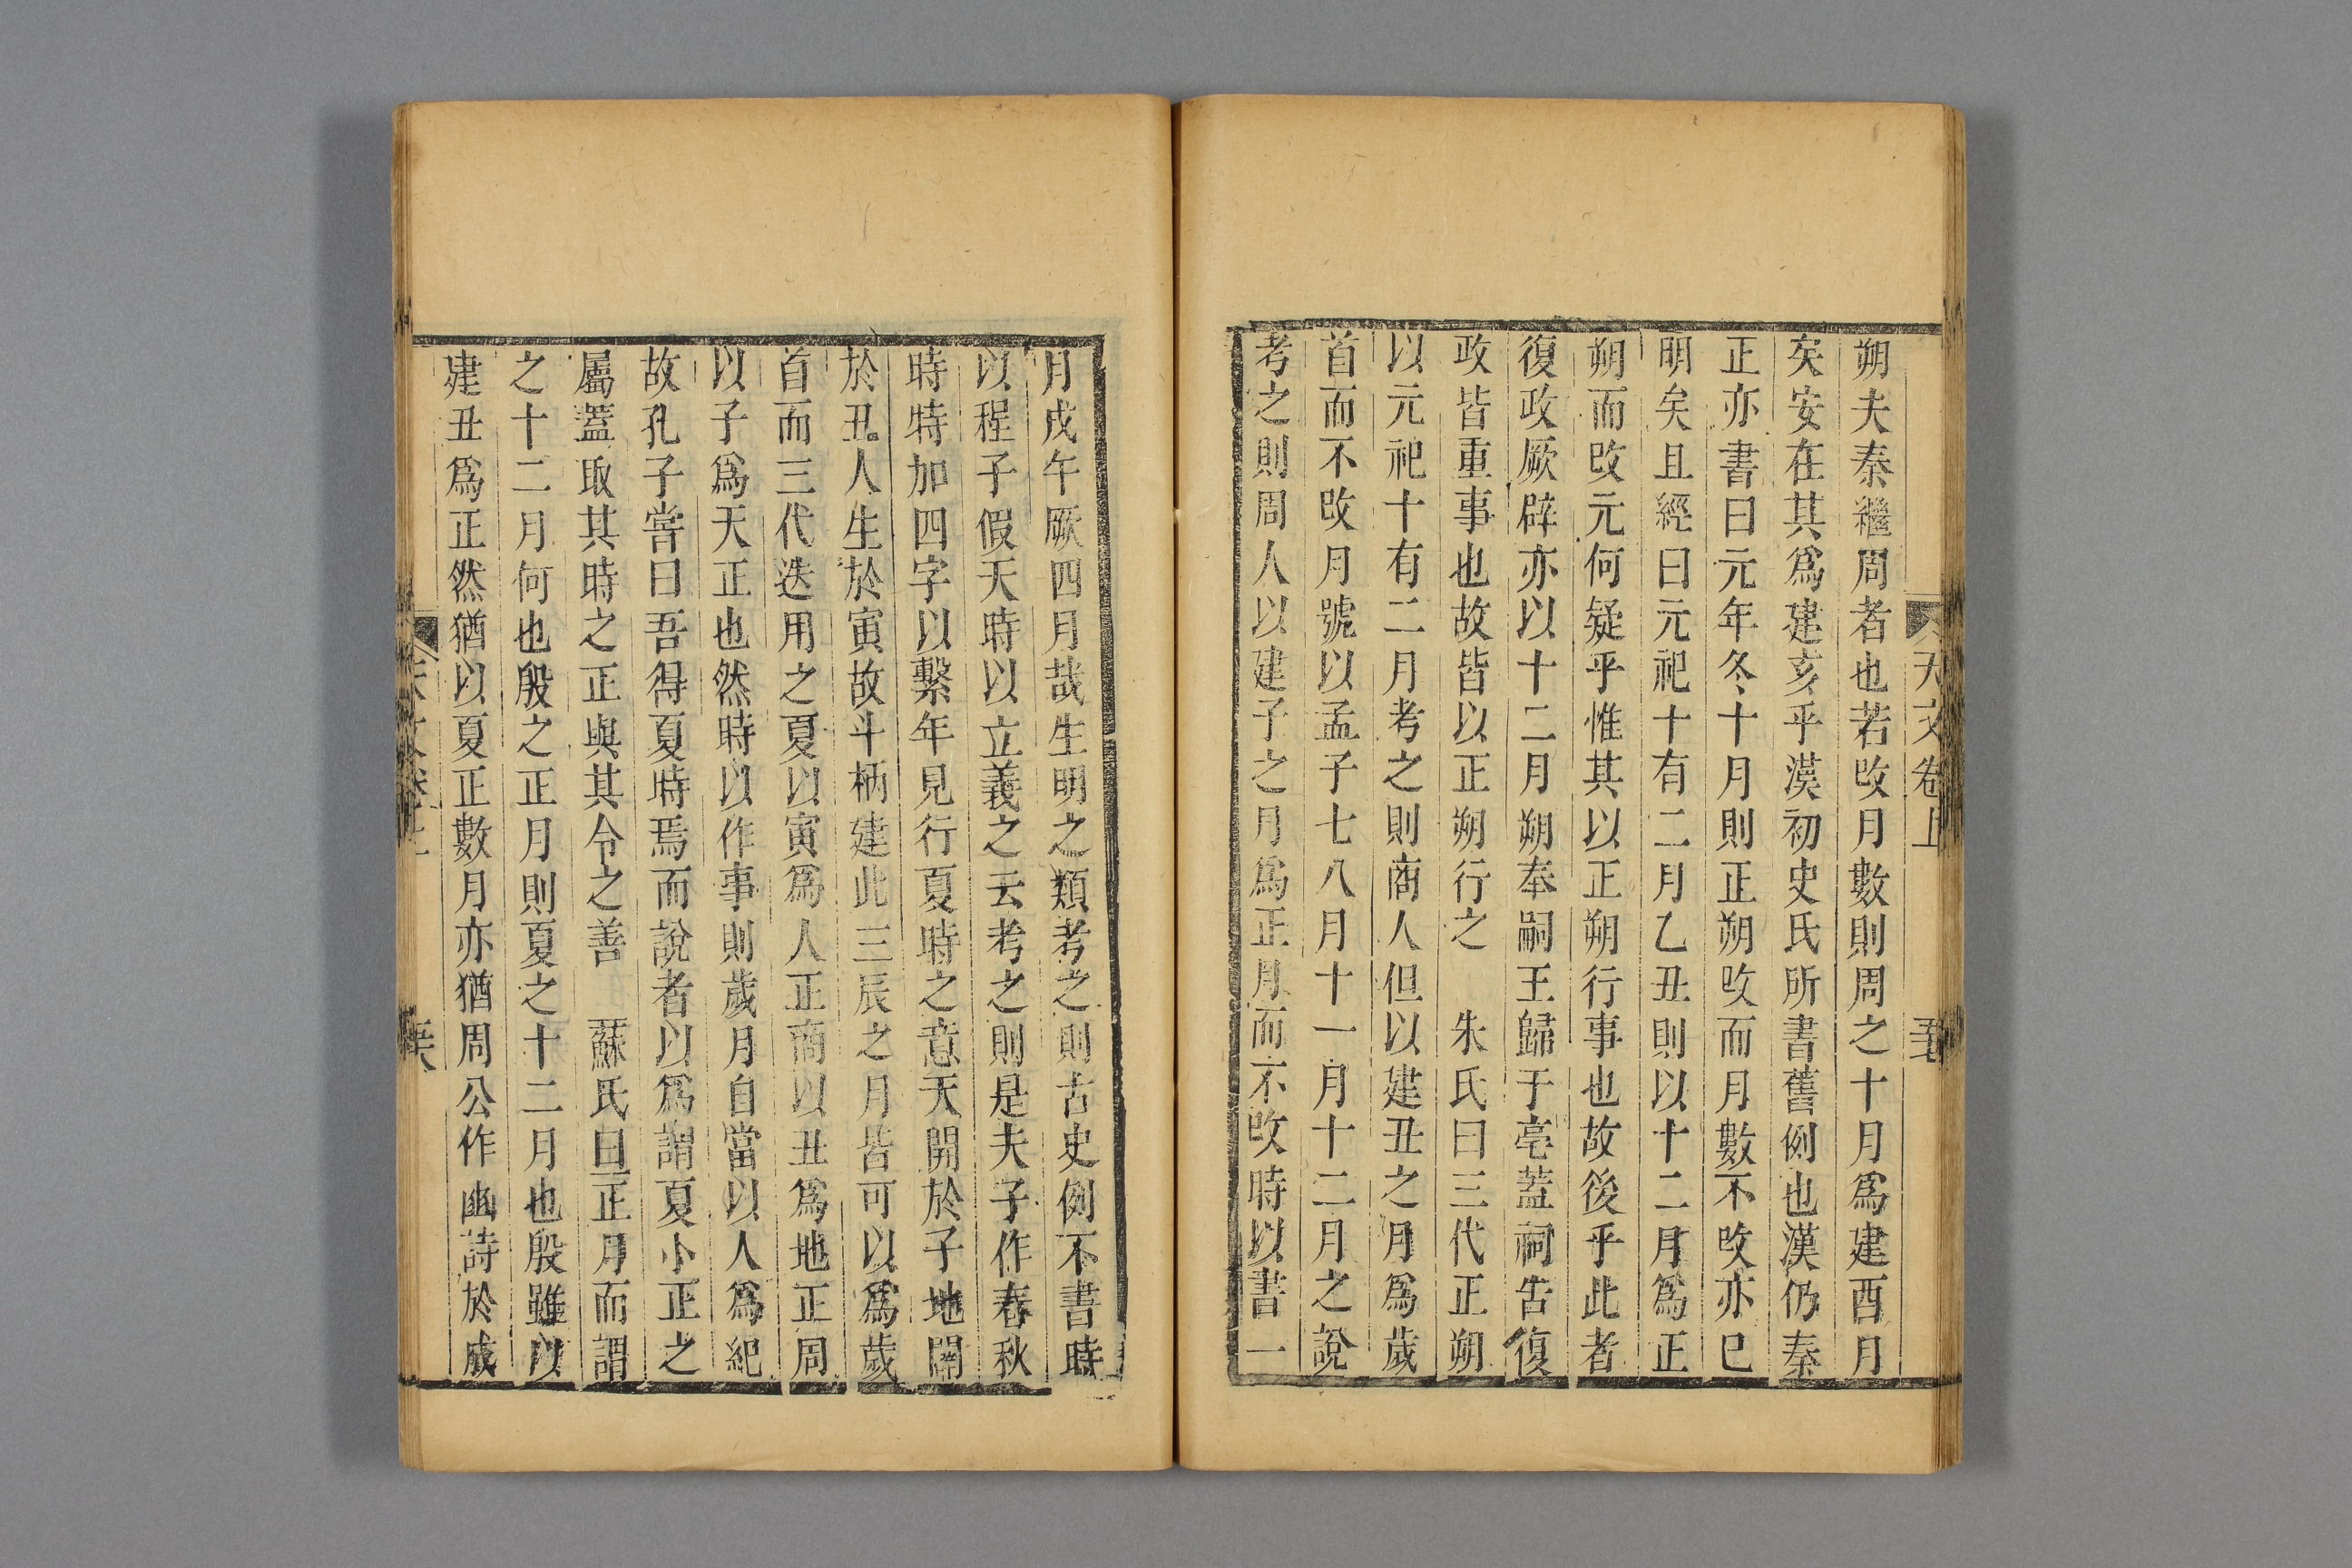 天文卷上
朔夫秦繼周者也若改月數則周之十月爲建酉月
矣安在其爲建亥乎漢初史氏所書舊例也漢仍秦
正亦書曰元年冬十月則正朔改而月數不改亦已
明矣且經曰元祀十有二月乙丑則以十二月爲正
朔而改元何疑乎惟其以正朔行事也故後乎此者
復政厥辟亦以十二月朔奉嗣王歸于亳蓋祠告復
政皆重事也故皆以正朔行之　朱氏曰三代正朔
以元祀十有二月考之則商人但以建丑之月爲歲
首而不改月號以孟子七八月十一月十二月之說
考之則周人以建子之月爲正月而不改時以書一
月戊午厥四月哉生明之類考之則古史例不書時
以程子假天時以立義之云考之則是夫子作春秋
時特加四字以繫年見行夏時之意天開於子地闢
於丑人生於寅故斗柄建此三辰之月皆可以爲歲
首而三代迭用之夏以寅爲人正商以丑爲地正周
以子爲天正也然時以作事則歲月自當以人爲紀
故孔子嘗曰吾得夏時焉而說者以爲謂夏小正之
屬蓋取其時之正與其令之善　蘇氏曰正月而謂
之十二月何也殷之正月則夏之十二月也殷雖以
建丑爲正然猶以夏正數月亦猶周公作豳詩於成